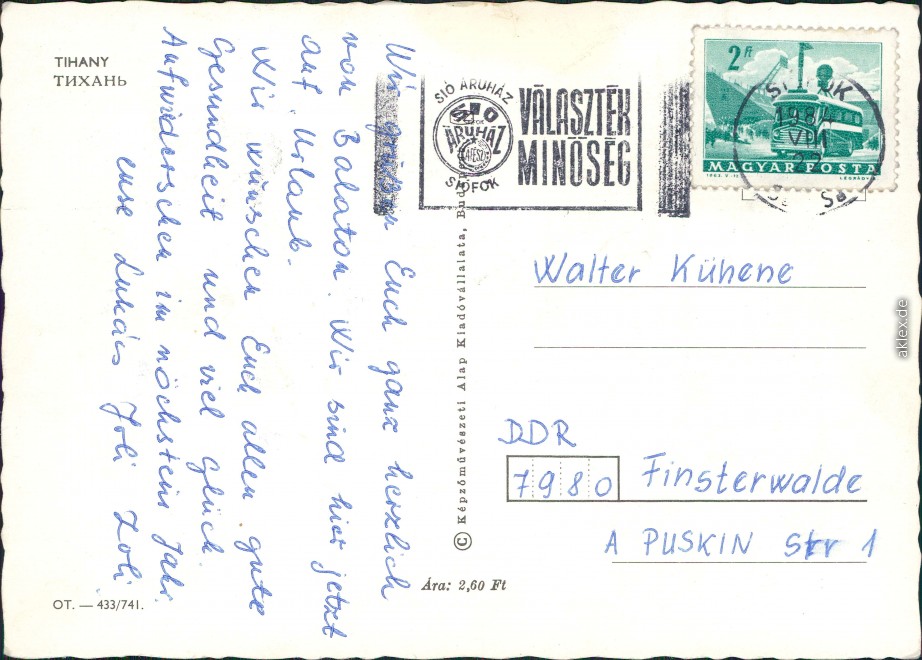 TIHANY
ТИХАНЬ
Wir grüßen Euch ganz herzlich
von Balaton. Wir sind hier jetzt
auf Urlaub.
Wir wünschen Euch allen gute
Gesundheit und viel Glück.
Aufwiderschen im nöchstens Jahr.
euse Lukács Joli Zoli
OT. — 433/741.
SIÓ ÁRUHÁZ
SIÓ
ÁRUHÁZ
SIÓFOK
VÁLASZTÉK
MINŐSÉG
2 Ft
MAGYAR POSTA
© Képzőművészeti Alap Kiadóvállalata,
Ára: 2,60 Ft
Walter Kühene
DDR
7980 Finsterwalde
A PUSKIN Str 1
aklex.de